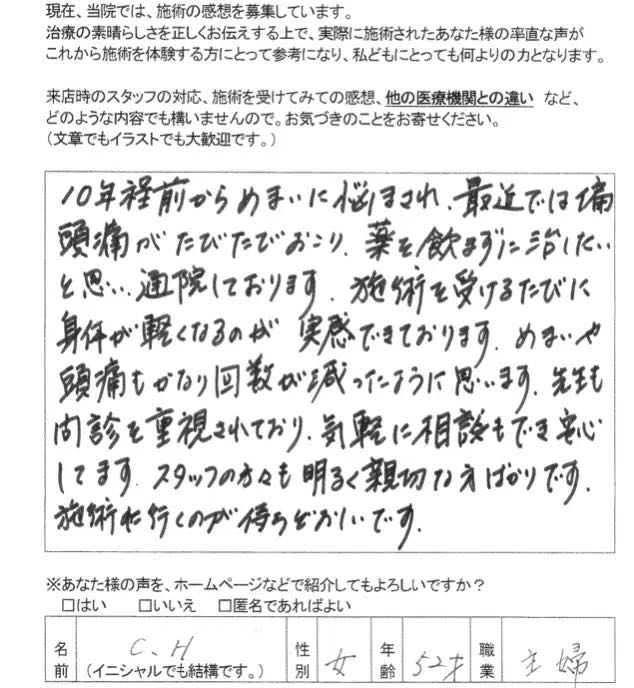 現在、当院では、施術の感想を募集しています。
治療の素晴らしさを正しくお伝えする上で、実際に施術されたあなた様の率直な声が
これから施術を体験する方にとって参考になり、私どもにとっても何よりの力となります。
来店時のスタッフの対応、施術を受けてみての感想、他の医療機関との違い など、
どのような内容でも構いませんので。お気づきのことをお寄せください。
(文章でもイラストでも大歓迎です。)
10年程前からめまいに悩まされ、最近では偏
頭痛がたびたびおこり、薬を飲まずに治したい
と思い、通院しております。施術を受けるたびに
身体が軽くなるのが 実感できております。めまいや
頭痛もかなり回数が減ったように思います。先生も
問診を重視されており、気軽に相談もでき安心
してます。スタッフの方々も明るく親切な方ばかりです。
施術に行くのが待ちどおしいです。
※あなた様の声を、ホームページなどで紹介してもよろしいですか？
□はい □いいえ □匿名であればよい
名前 C.H (イニシャルでも結構です。) 性別 女 年齢 52才 職業 主婦